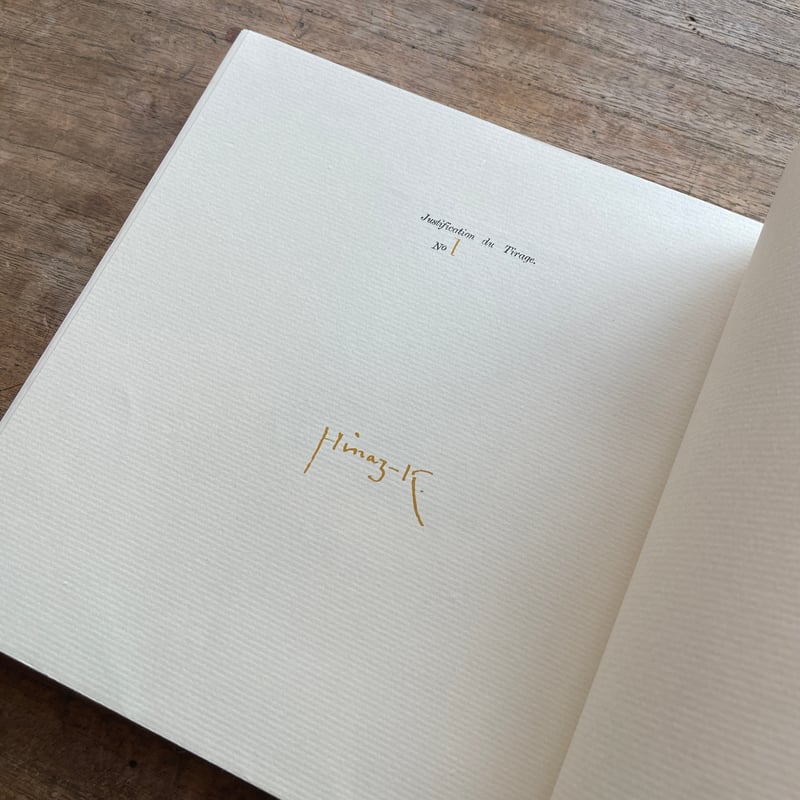 Justification du Tirage.
No 1
Hinaz-K.